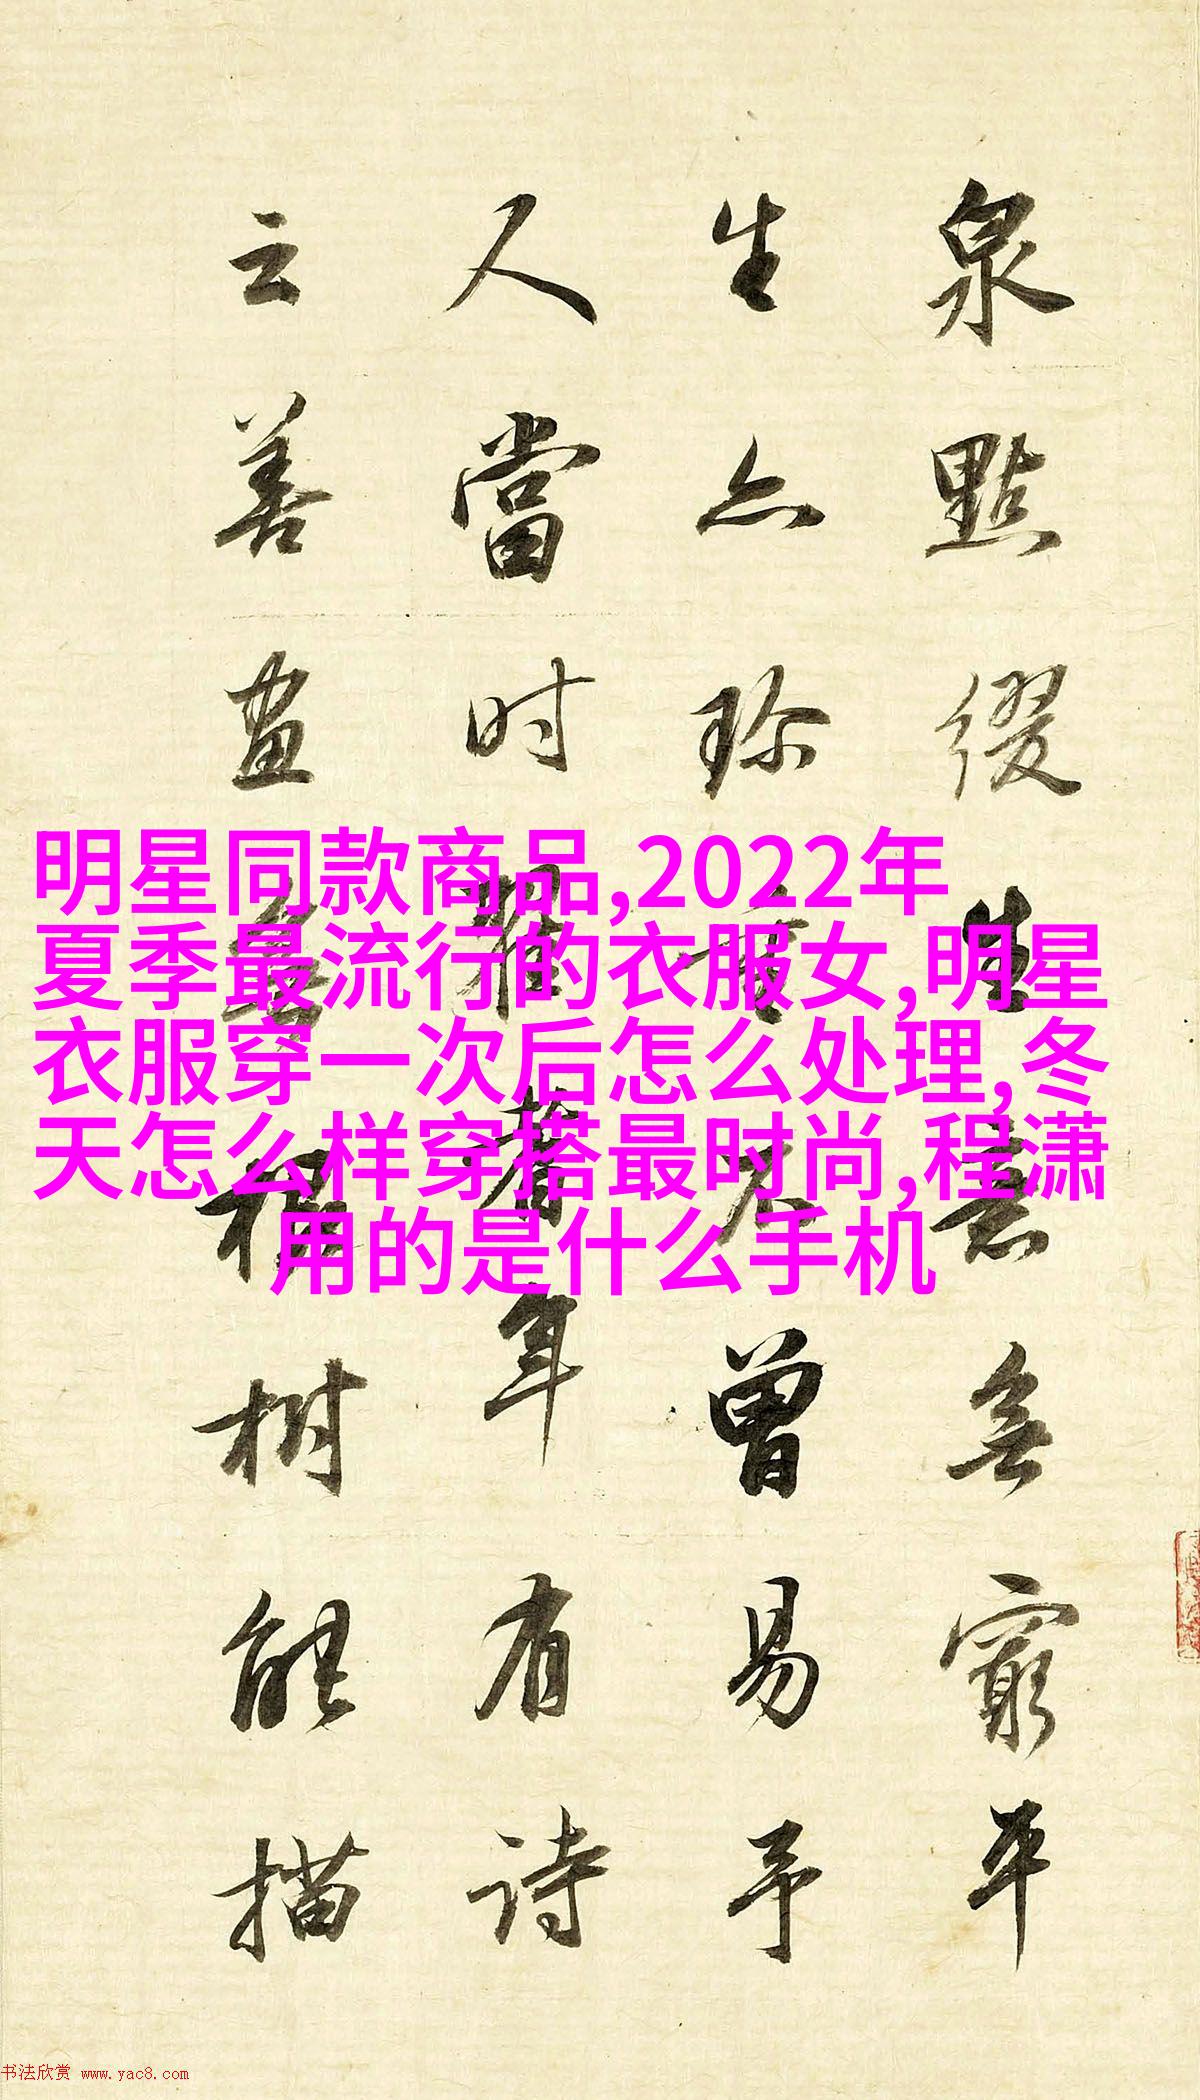 泉點缀生意無窮平
生亦珍重不曾易予
人當时年有诗
云善畫根树能描
明星同款商品,2022年
夏季最流行的衣服女,明星
衣服穿一次后怎么处理,冬
天怎么样穿搭最时尚,程潇
用的是什么手机
书法欣赏 www.yac8.com